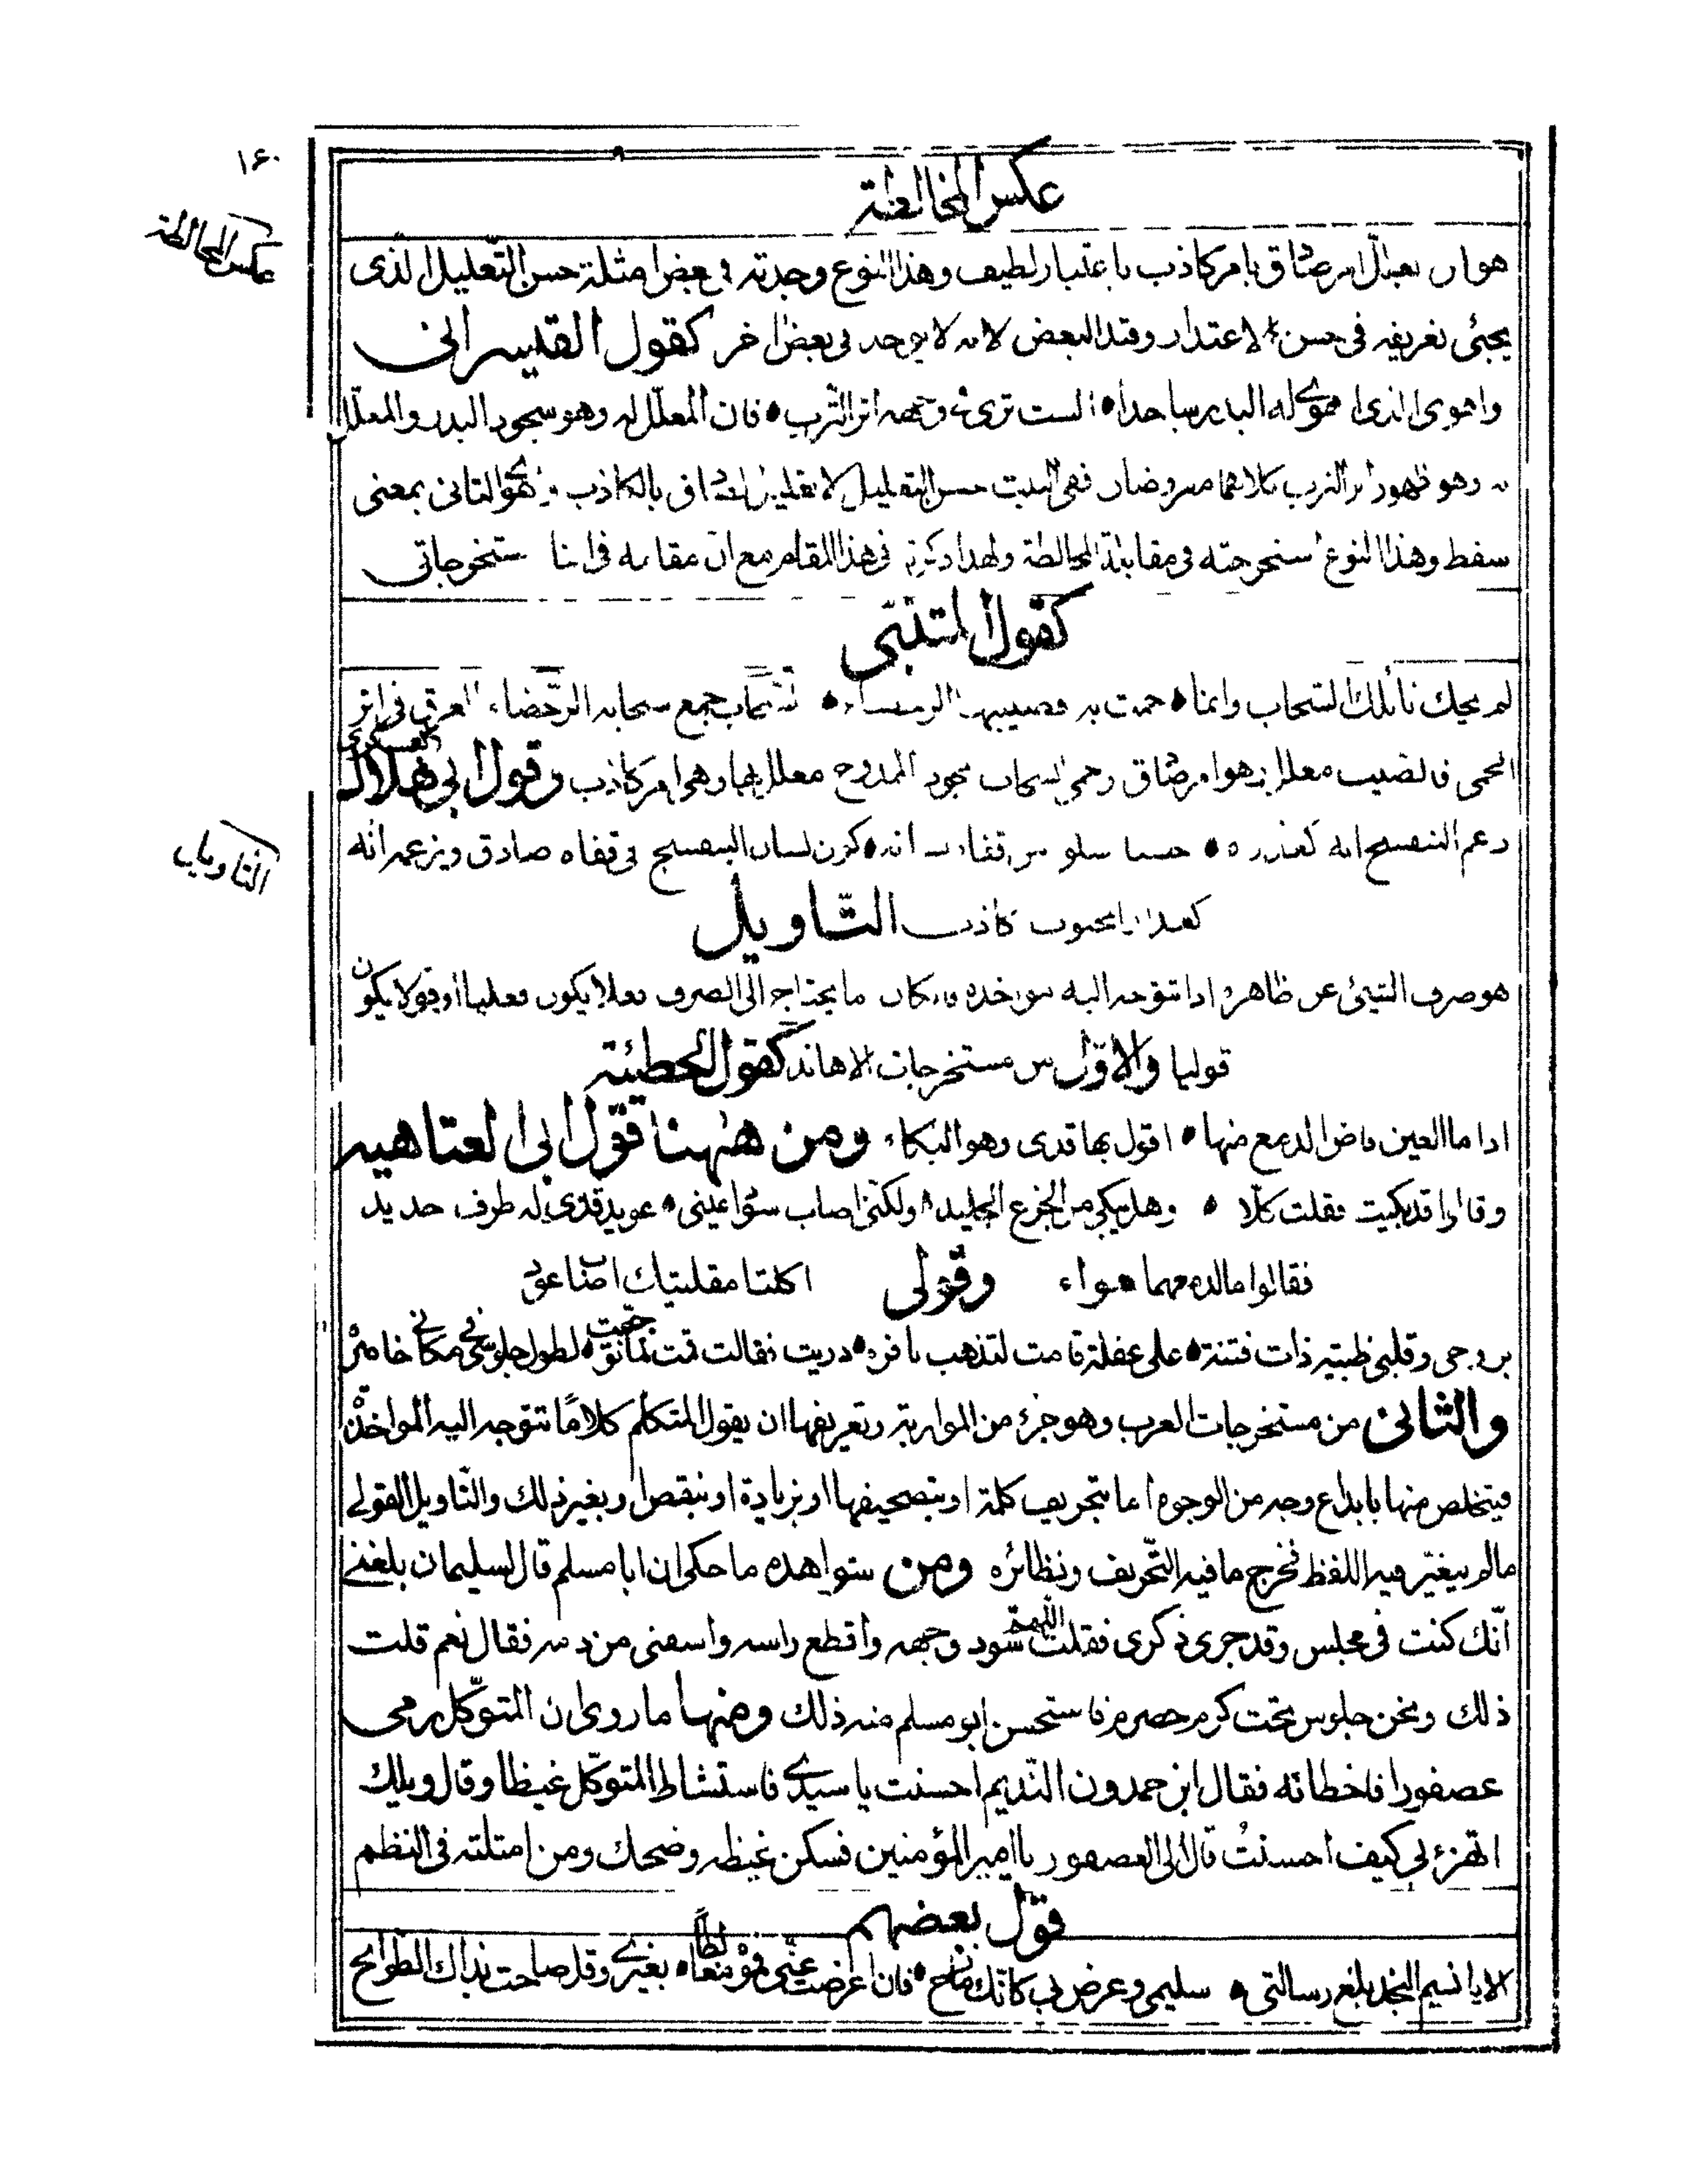 ١٦٠
عكس المخالطة
عكس المخالطة
هو ان يعلل امر صادق بامر كاذب باعتبار لطيف وهذا النوع وجدته في بعض امثلة حسن التعليل الذى
يجئى تعريفه فى حسن الاعتذار وقيد البعض لانه لا يوجد فى بعض اخر كقول القيسرانى
واهوى الذى اهوى له البدر ساجدا • الست ترى فى وجهه اثر الترب • فان المعلل له وهو سجود البدر والمعلل
به وهو ظهور اثر الترب كلاهما مفروضان ففى البيت حسن التعليل لا تعليل الصادق بالكاذب وهوى الثانى بمعنى
سقط وهذا النوع استخرجته فى مقابلة المخالطة ولهذا ذكرته فى هذا المقام مع ان مقامه فى اثنا مستخرجاتى
كقول المتنبى
لم يحك نائلك السحاب وانما • حمت به فصبيبها الرحضاء • جمع سحابه الرحضاء العرق فى اثر
الحمى فالصبيب معلل بها وهو امر صادق وحمى السحاب بجود الممدوح معلل بها وهى امر كاذب وقول ابى هلال العسكرى
زعم البنفسج انه كعذاره • حسنا سلوا من قفاه لسانه • كون لسان البنفسج فى قفاه صادق وزعمه انه
التاويل
كعذار المحبوب كاذب التاويل
هو صرف الشيئ عن ظاهره اذا تتوجه اليه مواخذة فان كان ما يحتاج الى الصرف فعلا يكون فعليا او قولا يكون
قوليا والاول من مستخرجات الاهاند كقول الحطيئة
اذا ما العين فاض الدمع منها • اقول بها قذى وهو البكاء ومن ههنا قول ابى العتاهيه
وقالوا قد بكيت فقلت كلا • وهل يبكى من الجزع الجليد • ولكنى اصاب سوا عينى • عويد قذى له طرف حديد
فقالوا ما لدمعهما سواء وقولى اكلتا مقلتيك اصاب عود
بروحى وقلبى ظبية ذات فتنة • على غفلة قامت لتذهب نافره • دريت فقالت قمت لطول جلوسى فى مكانى خامره
والثانى من مستخرجات العرب وهو جزء من المواربة وتعريفها ان يقول المتكلم كلاما تتوجه اليه المواخذة
فيتخلص منها بابداع وجه من الوجوه اما بتحريف كلمة او بتصحيفها او بزيادة او بنقص او بغير ذلك والتاويل القولى
مالم يغير فيه اللفظ فخرج ما فيه التحريف ونظائره ومن شواهده ما حكى ان ابا مسلم قال لسليمان بلغنى
انك كنت فى مجلس وقد جرى ذكرى فقلت اللهم سود وجهه واقطع راسه واسقنى من دمه فقال نعم قلت
ذلك ونحن جلوس تحت كرم حصرم فاستحسن ابو مسلم منه ذلك ومنها ما روى ان المتوكل رمى
عصفورا فاخطأنه فقال ابن حمدون النديم احسنت يا سيدى فاستشاط المتوكل غيظا وقال ويلك
اتهزء بى كيف احسنت قال الى العصفور يا امير المؤمنين فسكن غيظه وضحك ومن امثلته فى النظم
قول بعضهم
الا يا نسيم النجد بلغ رسالتى • سليمى وعرض بى كانك مازح • فان اعرضت عنى فموه مغالطا • بغيرى وقل صاحت بذاك الطوايح